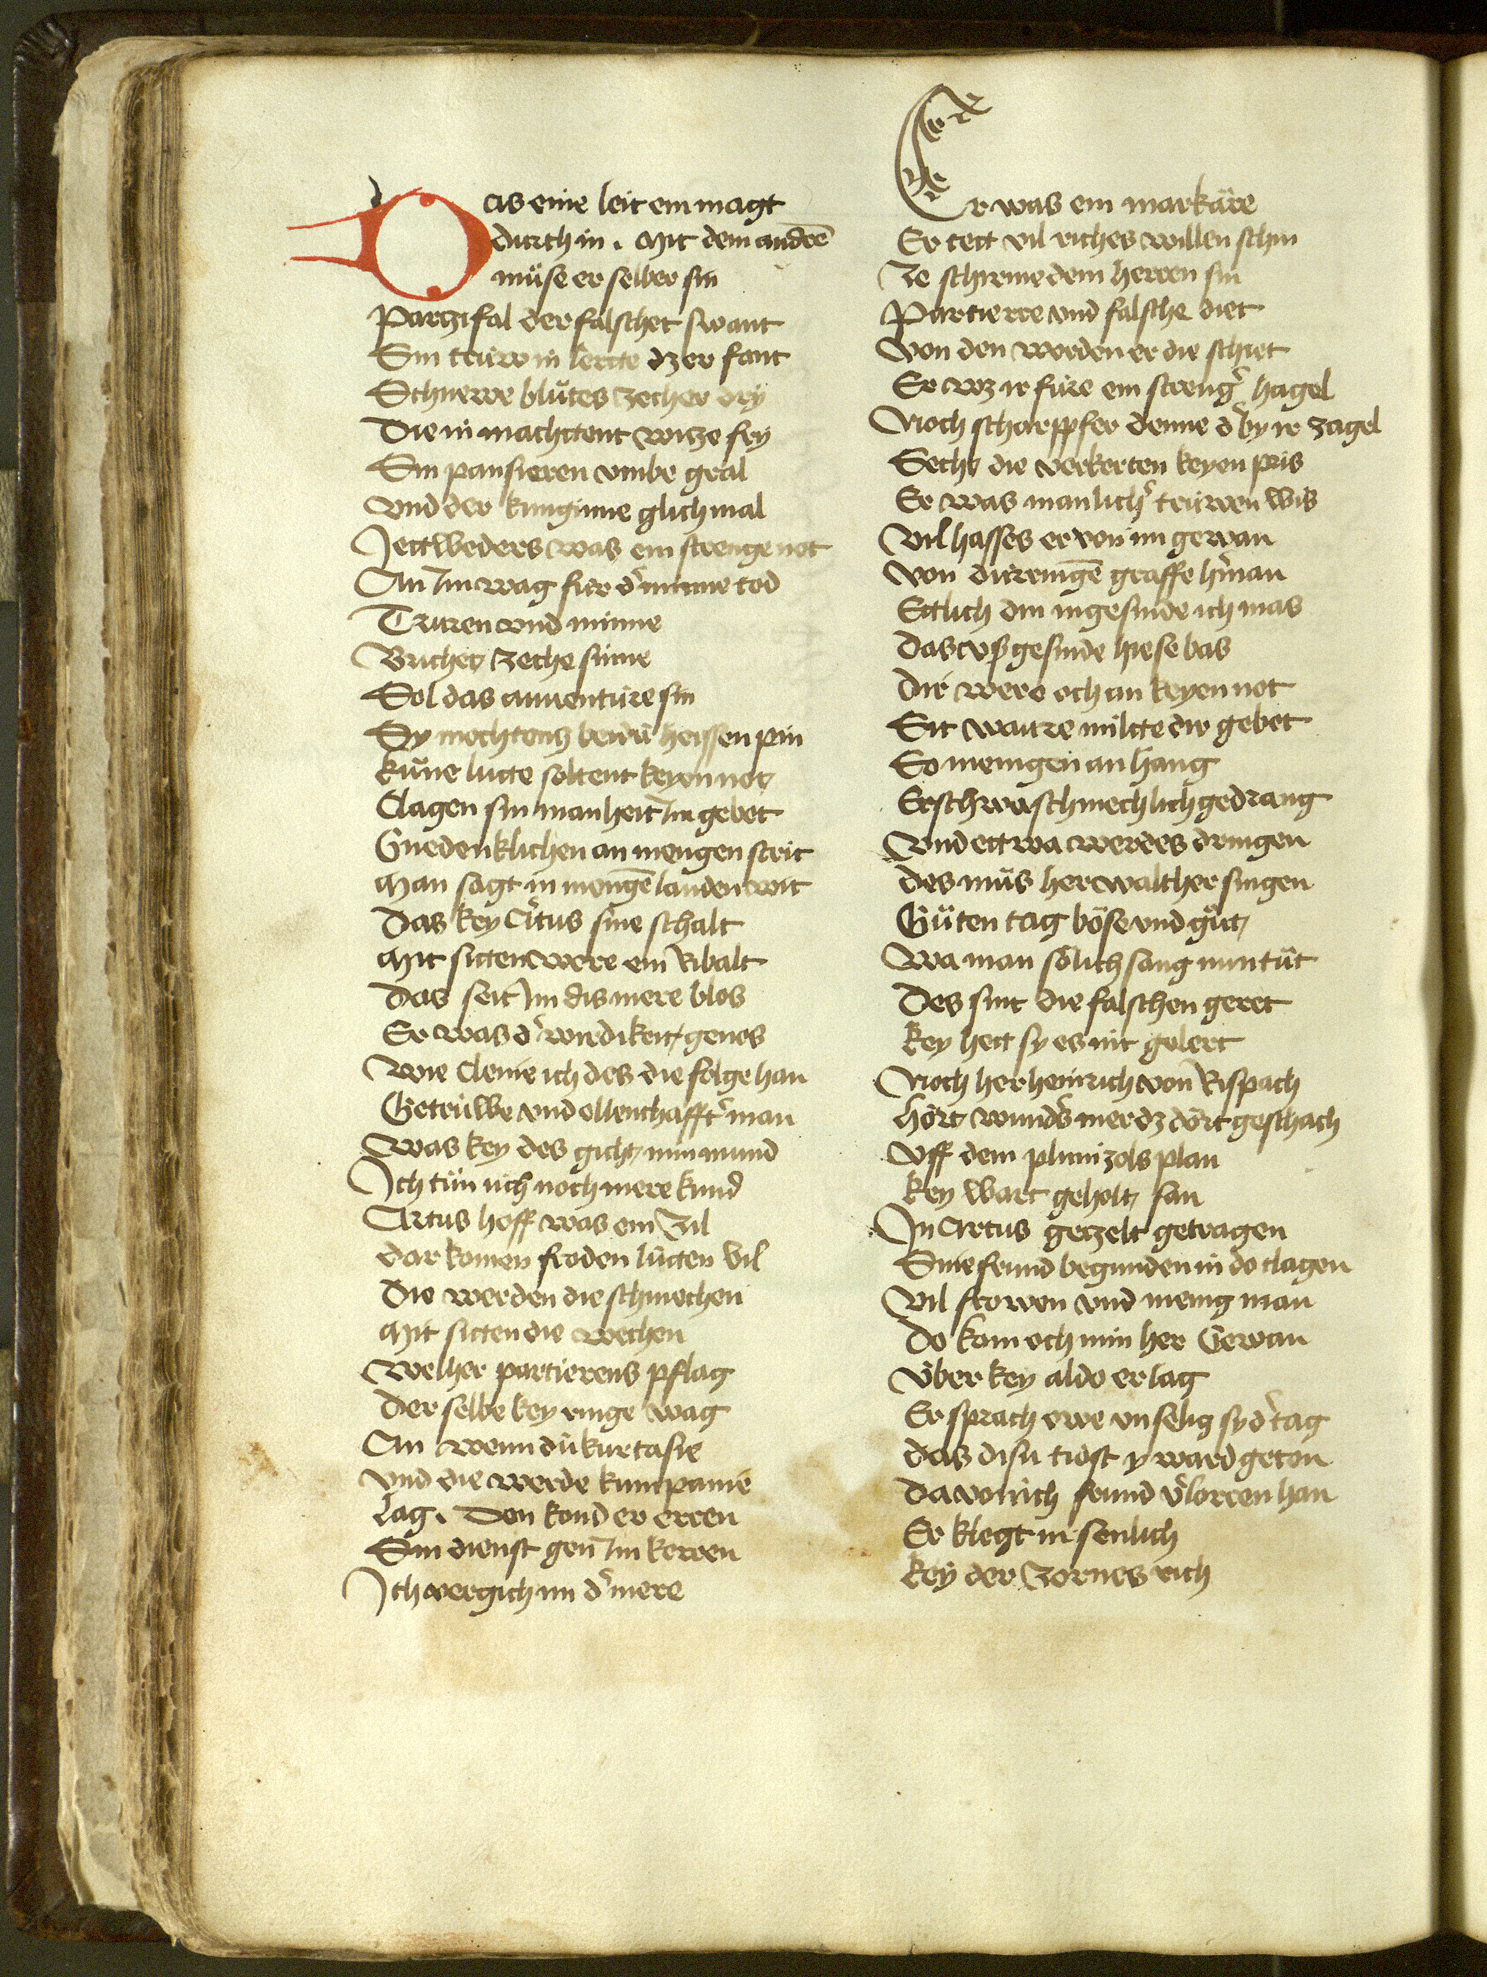 Das eine leit ein magt
durch in . Mit dem andrē
müse er selber sin
Parzifal der falschet swant
Sin trüw in lerte dz er fant
Schnewe blütes zecher dry
Die in machtent witze fry
Sin pansieren vmbe gral
Vnd der kunginne glich mal
Jettweders was ein strenge not
An Im wag für d' minne tod
Truren vnd minne
Brichet zeche sinne
Sol das auuenture sin
Sy mochtens beidü heissen pin
Küne lutte soltent keyen not
Clagen sin manheit Im gebot
Gnedenklichen an mengen strit
Man sagt in mengē landen wit
Das key Artus sine schalt
Mit sitten were ein Ribalt
Das seit Im dis mere blos
Er was d' wirdikeit genos
Wie Cleine ich des die folge han
Getrüwe vnd ellenthafft' man
Was key des gicht min mund
Ich tün üch noch mere kund
Artus hoff was ein zil
dar komen froden lütten vil
Die werden die schmechen
Mit sitten die wechen
Welher partierens pflag
Der selbe key ringe wag
An wenn dü kurtasie
Vnd die werde kumpanie
Lag . Den kond er eren
Sin dienst gen Im keren
Ich vergich im d' mere
Er was ein markäre
Er tett vil riches willen schin
Ze schirme dem herren sin
Partierre vnd falsche diet
Von den werden er die schiet
Er wz ir füre ein streng' hagel
Noch scharpfer denne d' by ir zagel
Secht die verkerten keyen pris
Er was manlich' trüwen wis
Vil hasses er von im gewan
Von dürengē graffe h'man
Ettlich din ingesinde ich mas
Das vsgesinde hiese bas
Dir were och an keyen not
Sit ware milte dir gebot
So menigen an hang
Ettschwa schmechlich gedrang
Vnd ettwa werdes dringen
des müs her walther singen
Güten tag böse vnd güt
Wa man sölich sang nun tüt
Des sint die falschen geret
Key hett sy es nit gelert
Noch her heinrich von Rispach
hört wund's mer dz dört geschach
Vff dem plimizols plan
Key wart geholt san
In Artus gezelt getragen
Sine frund begunden in do clagen
Vil frowen vnd menig man
Do kam och min her Gewan
Über key aldo er lag
Er sprach owe vnselig sy d' tag
das disü tiost y ward geton
Da von ich frund v'lorren han
Er klegt in senlich
Key der zornes rich